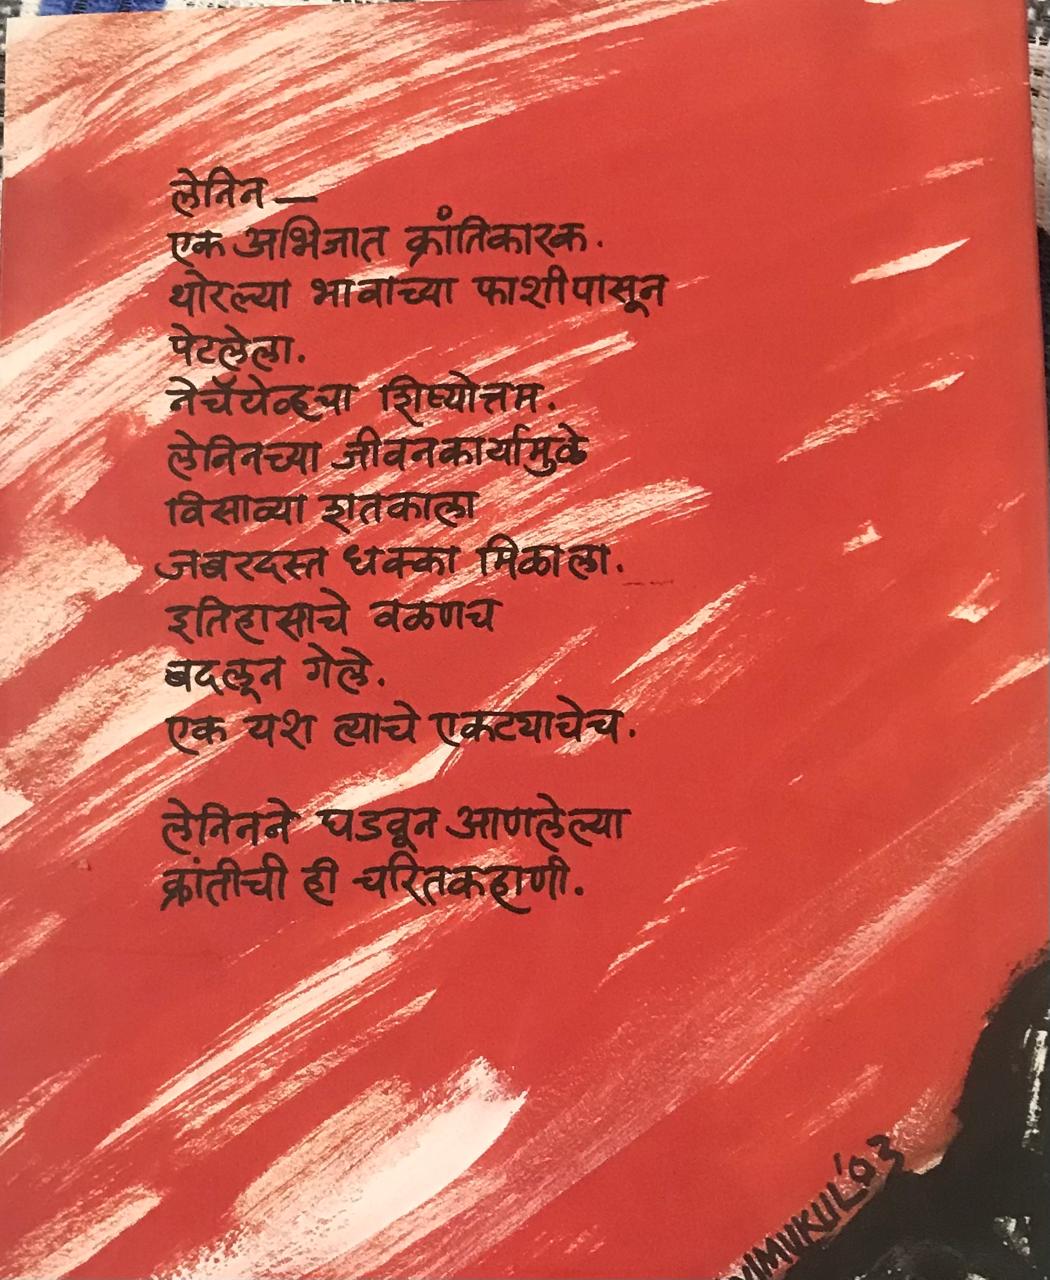 लेनिन —
एक अभिजात क्रांतिकारक.
थोरल्या भावाच्या फाशीपासून
पेटलेला.
नेचॅयेव्हचा शिष्योत्तम.
लेनिनच्या जीवनकार्यामुळे
विसाव्या शतकाला
जबरदस्त धक्का मिळाला.
इतिहासाचे वळणच
बदलून गेले.
एक यश त्याचे एकट्याचेच.
लेनिनने घडवून आणलेल्या
क्रांतीची ही चरितकहाणी.